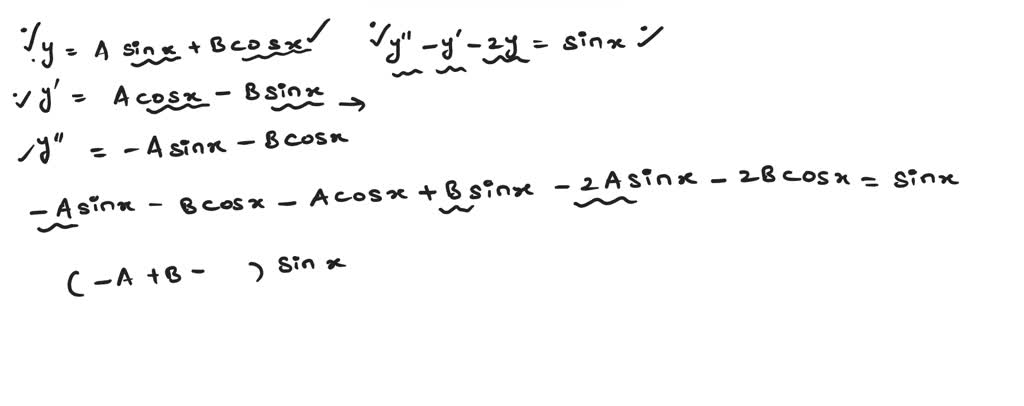 y = A sinx + B cosx y'' - y' - 2y = sinx
y' = A cosx - B sinx →
y'' = -A sinx - B cosx
-A sinx - B cosx - A cosx + B sinx - 2A sinx - 2B cosx = sinx
( -A + B - ) sin x